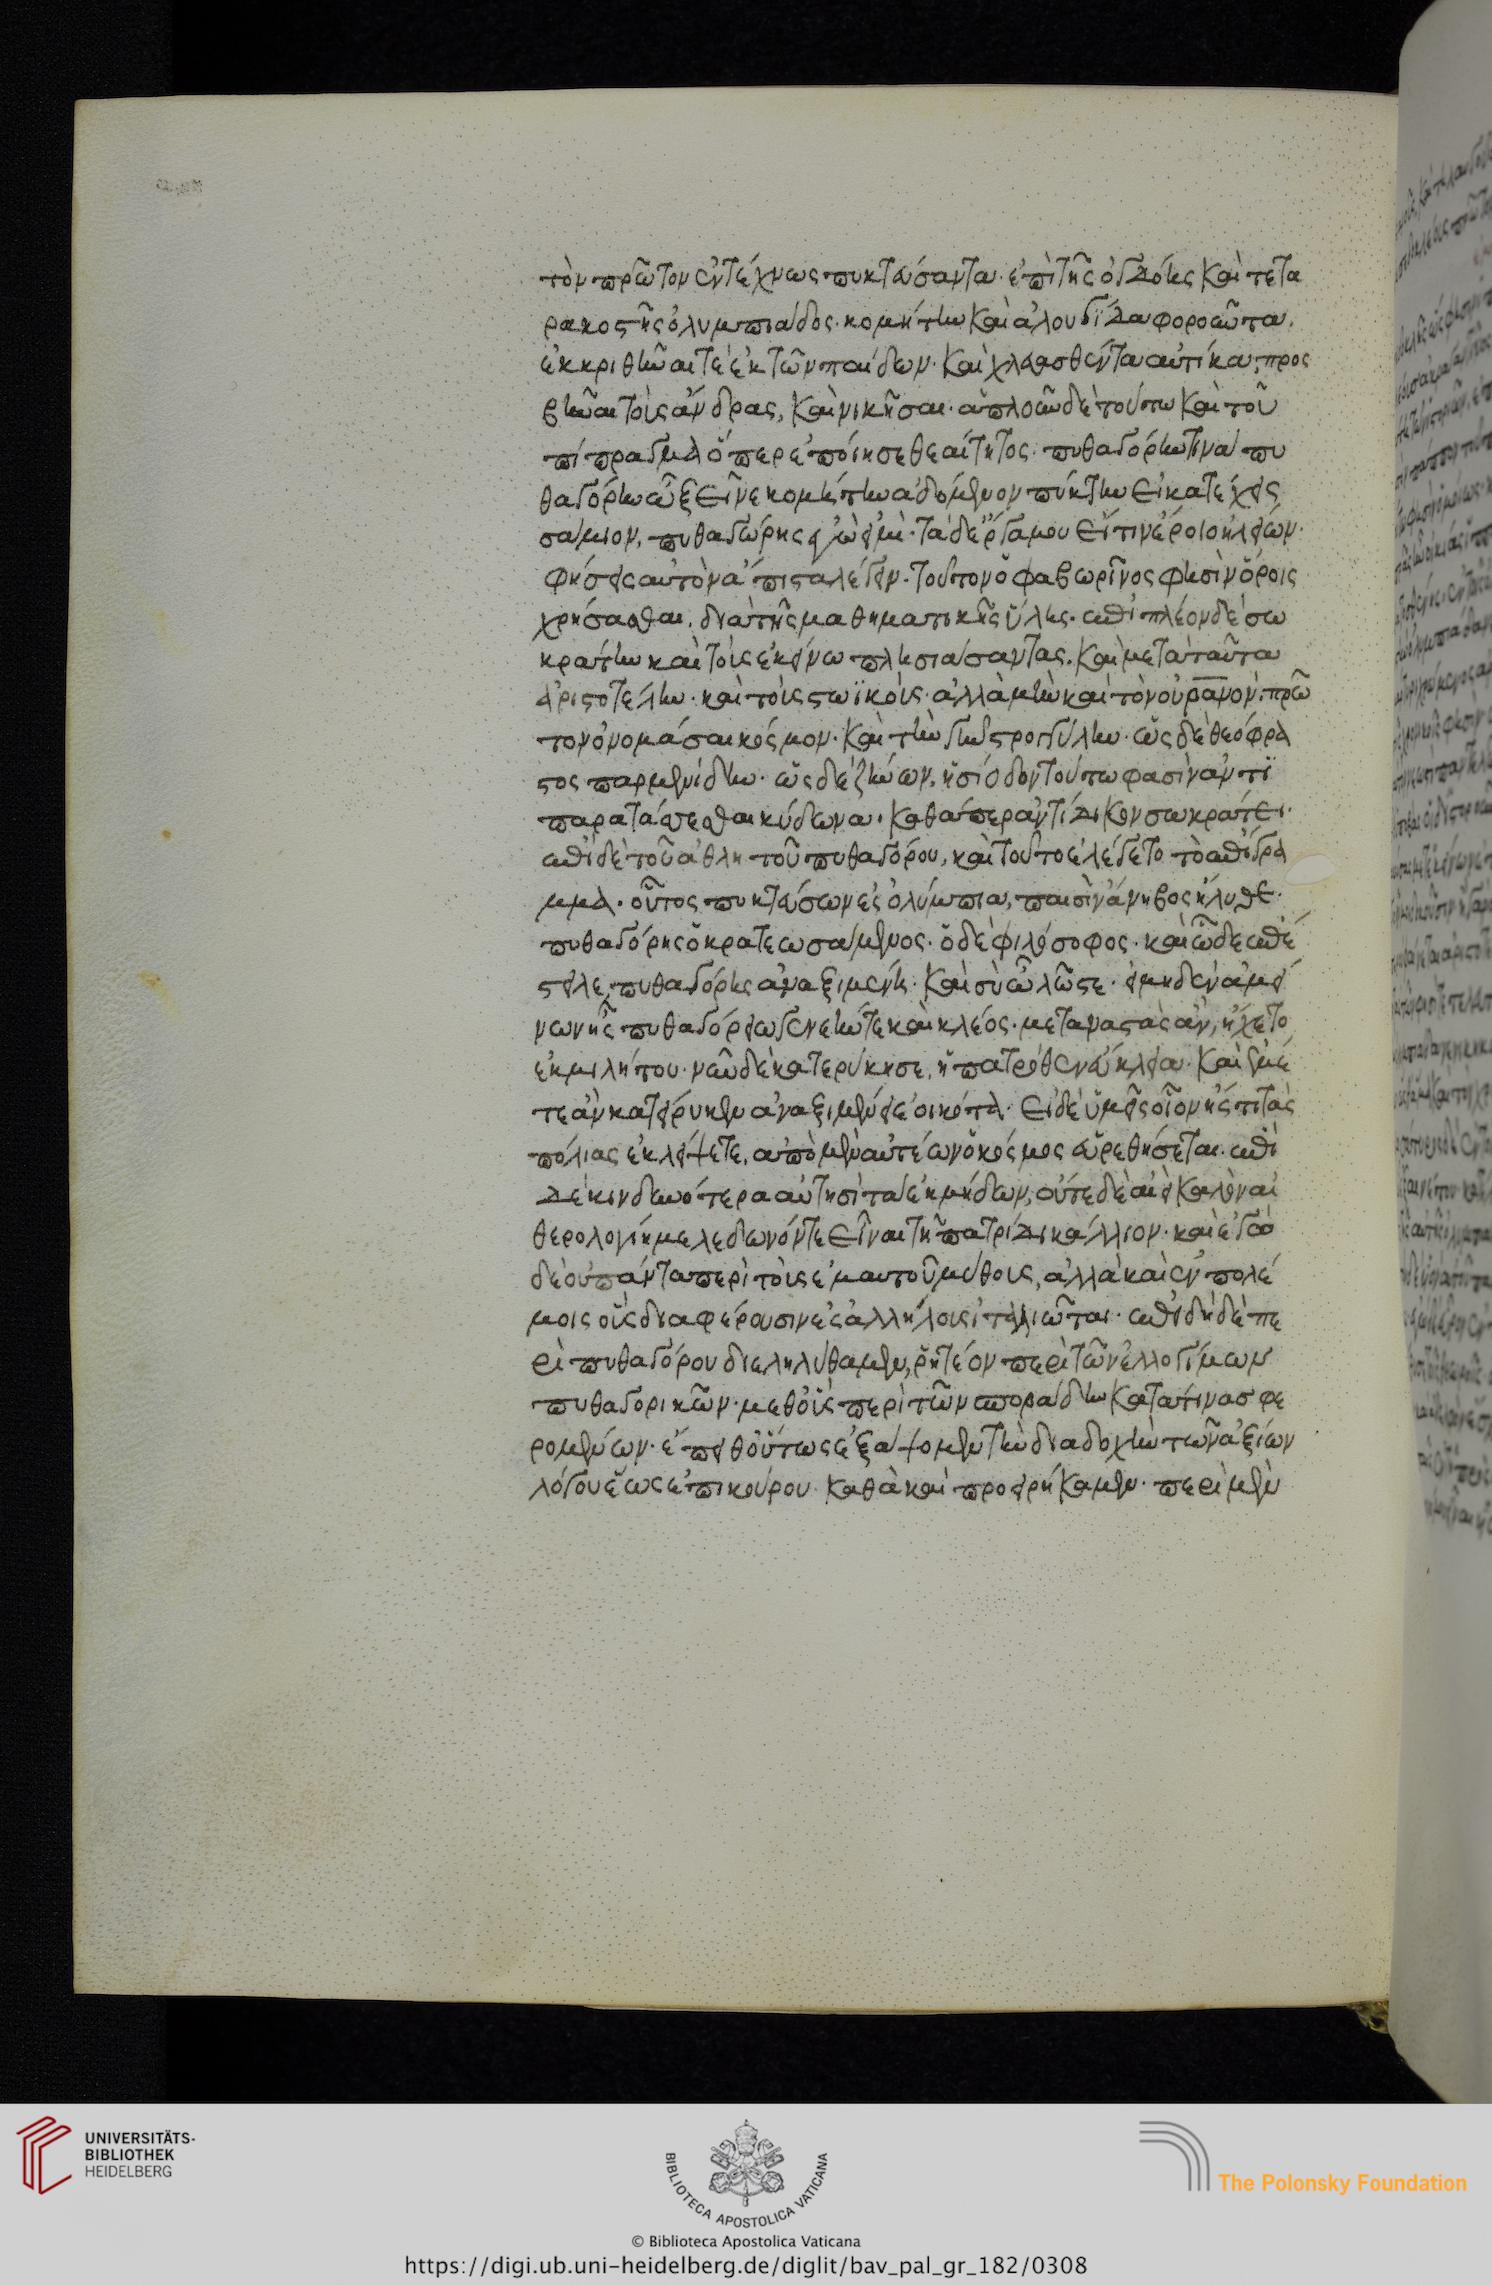 τὸν πρῶτον ἐντέχνως πυκτεύσαντα· ἐπὶ τῆς ὀγδόης καὶ τετα
ρακοστῆς ὀλυμπιάδος· κομήτην καὶ ἁλουργίδα φοροῦντα,
ἐκκριθῆναί τε ἐκ τῶν παίδων· καὶ χλευασθέντα αὐτίκα, προσ
βῆναι τοὺς ἄνδρας, καὶ νικῆσαι· δηλοῦν δὲ τοῦτο καὶ τοὐ
πίγραμμα ὅπερ ἐποίησε θεαίτητος· πυθαγόρην τινα πυ
θαγόρην ὦ ξεῖνε κομήτην ἀδόμενον πύκτην εἰ κατέχεις
σάμιον, πυθαγόρης ἐγώ εἰμι· τὰ δ' ἔργα μου εἴ τιν' ἔροιο ἠλείων·
φήσεις αὐτὸν ἄπιστα λέγειν· τοῦτον ὁ φαβωρῖνος φησὶν ὅροις
χρήσασθαι, διὰ τῆς μαθηματικῆς ὕλης· ἐπὶ πλέον δὲ σω
κράτην καὶ τοὺς ἐκείνω πλησιάσαντας, καὶ μετὰ ταῦτα
ἀριστοτέλην· καὶ τοὺς στωϊκούς· ἀλλὰ μὴν καὶ τὸν οὐρανὸν πρῶ
τον ὀνομάσαι κόσμον· καὶ τὴν γῆν στρογγύλην· ὡς δὲ θεόφρα
στος παρμενίδην· ὡς δὲ ζήνων, ἡσίοδον τούτω φασὶν ἀντι
παρατάσσεσθαι κύδωνα· καθάπερ ἀντίδικον σωκράτει·
ἐπὶ δὲ τοῦ ἀθλητοῦ πυθαγόρου, καὶ τοῦτο ἐλέγετο τὸ ἐπίγρα
μμα· οὗτος πυκτεύσων ἐς ὀλύμπια, παισὶν ἄνηβος ἤλυθε·
πυθαγόρης ὁ κρατεω σάμενος· ὁ δὲ φιλόσοφος· καὶ ὧδε ἐπέ
στειλε, πυθαγόρης ἀναξιμένη· καὶ σὺ ὦ λῶστε· εἰ μηδὲν ἀμεί
νων ἦς πυθαγόρεω γενεήν τε καὶ κλέος· μεταναστὰς ἂν, ἤχετο
ἐκ μιλήτου· νῦν δὲ κατερύκησε, ἡ πατρόθεν εὔκλεια· καὶ ἐμέ
τε ἂν κατείρυκεν ἀναξιμένει ἐοικότα· εἰ δὲ ὑμεῖς οἱ ὀνήιστοι τὰς
πόλιας ἐκλείψετε, ἀπὸ μὲν αὐτέων ὁ κόσμος αἱρεθήσεται· ἐπι
δὲ κινδυνότερα αὐτῆσι τὰ ἐκ μήδων, οὔτε δὲ αἰεὶ καλὸν αἰ
θερολογίη μελεδωνόν τε εἶναι τῆ πατρίδι κάλλιον· καὶ ἐγὼ
δὲ οὐ πάντα περὶ τοὺς ἐμαυτοῦ μύθους, ἀλλὰ καὶ ἐν πολέ
μοις οὓς διαφέρουσιν ἐς ἀλλήλους ἰταλιῶται· ἐπειδὴ δὲ πε
ρὶ πυθαγόρου διεληλύθαμεν, ῥητέον περὶ τῶν ἐλλογίμων
πυθαγορικῶν· μεθ' οὓς περὶ τῶν σποράδην κατά τινας φε
ρομένων· ἔπειθ' οὕτως ἐξάψομεν τὴν διαδοχὴν τῶν ἀξίων
λόγου ἕως ἐπικούρου· καθὰ καὶ προειρήκαμεν· περὶ μὲν
UNIVERSITÄTS-
BIBLIOTHEK
HEIDELBERG
BIBLIOTECA APOSTOLICA VATICANA
The Polonsky Foundation
© Biblioteca Apostolica Vaticana
https://digi.ub.uni-heidelberg.de/diglit/bav_pal_gr_182/0308